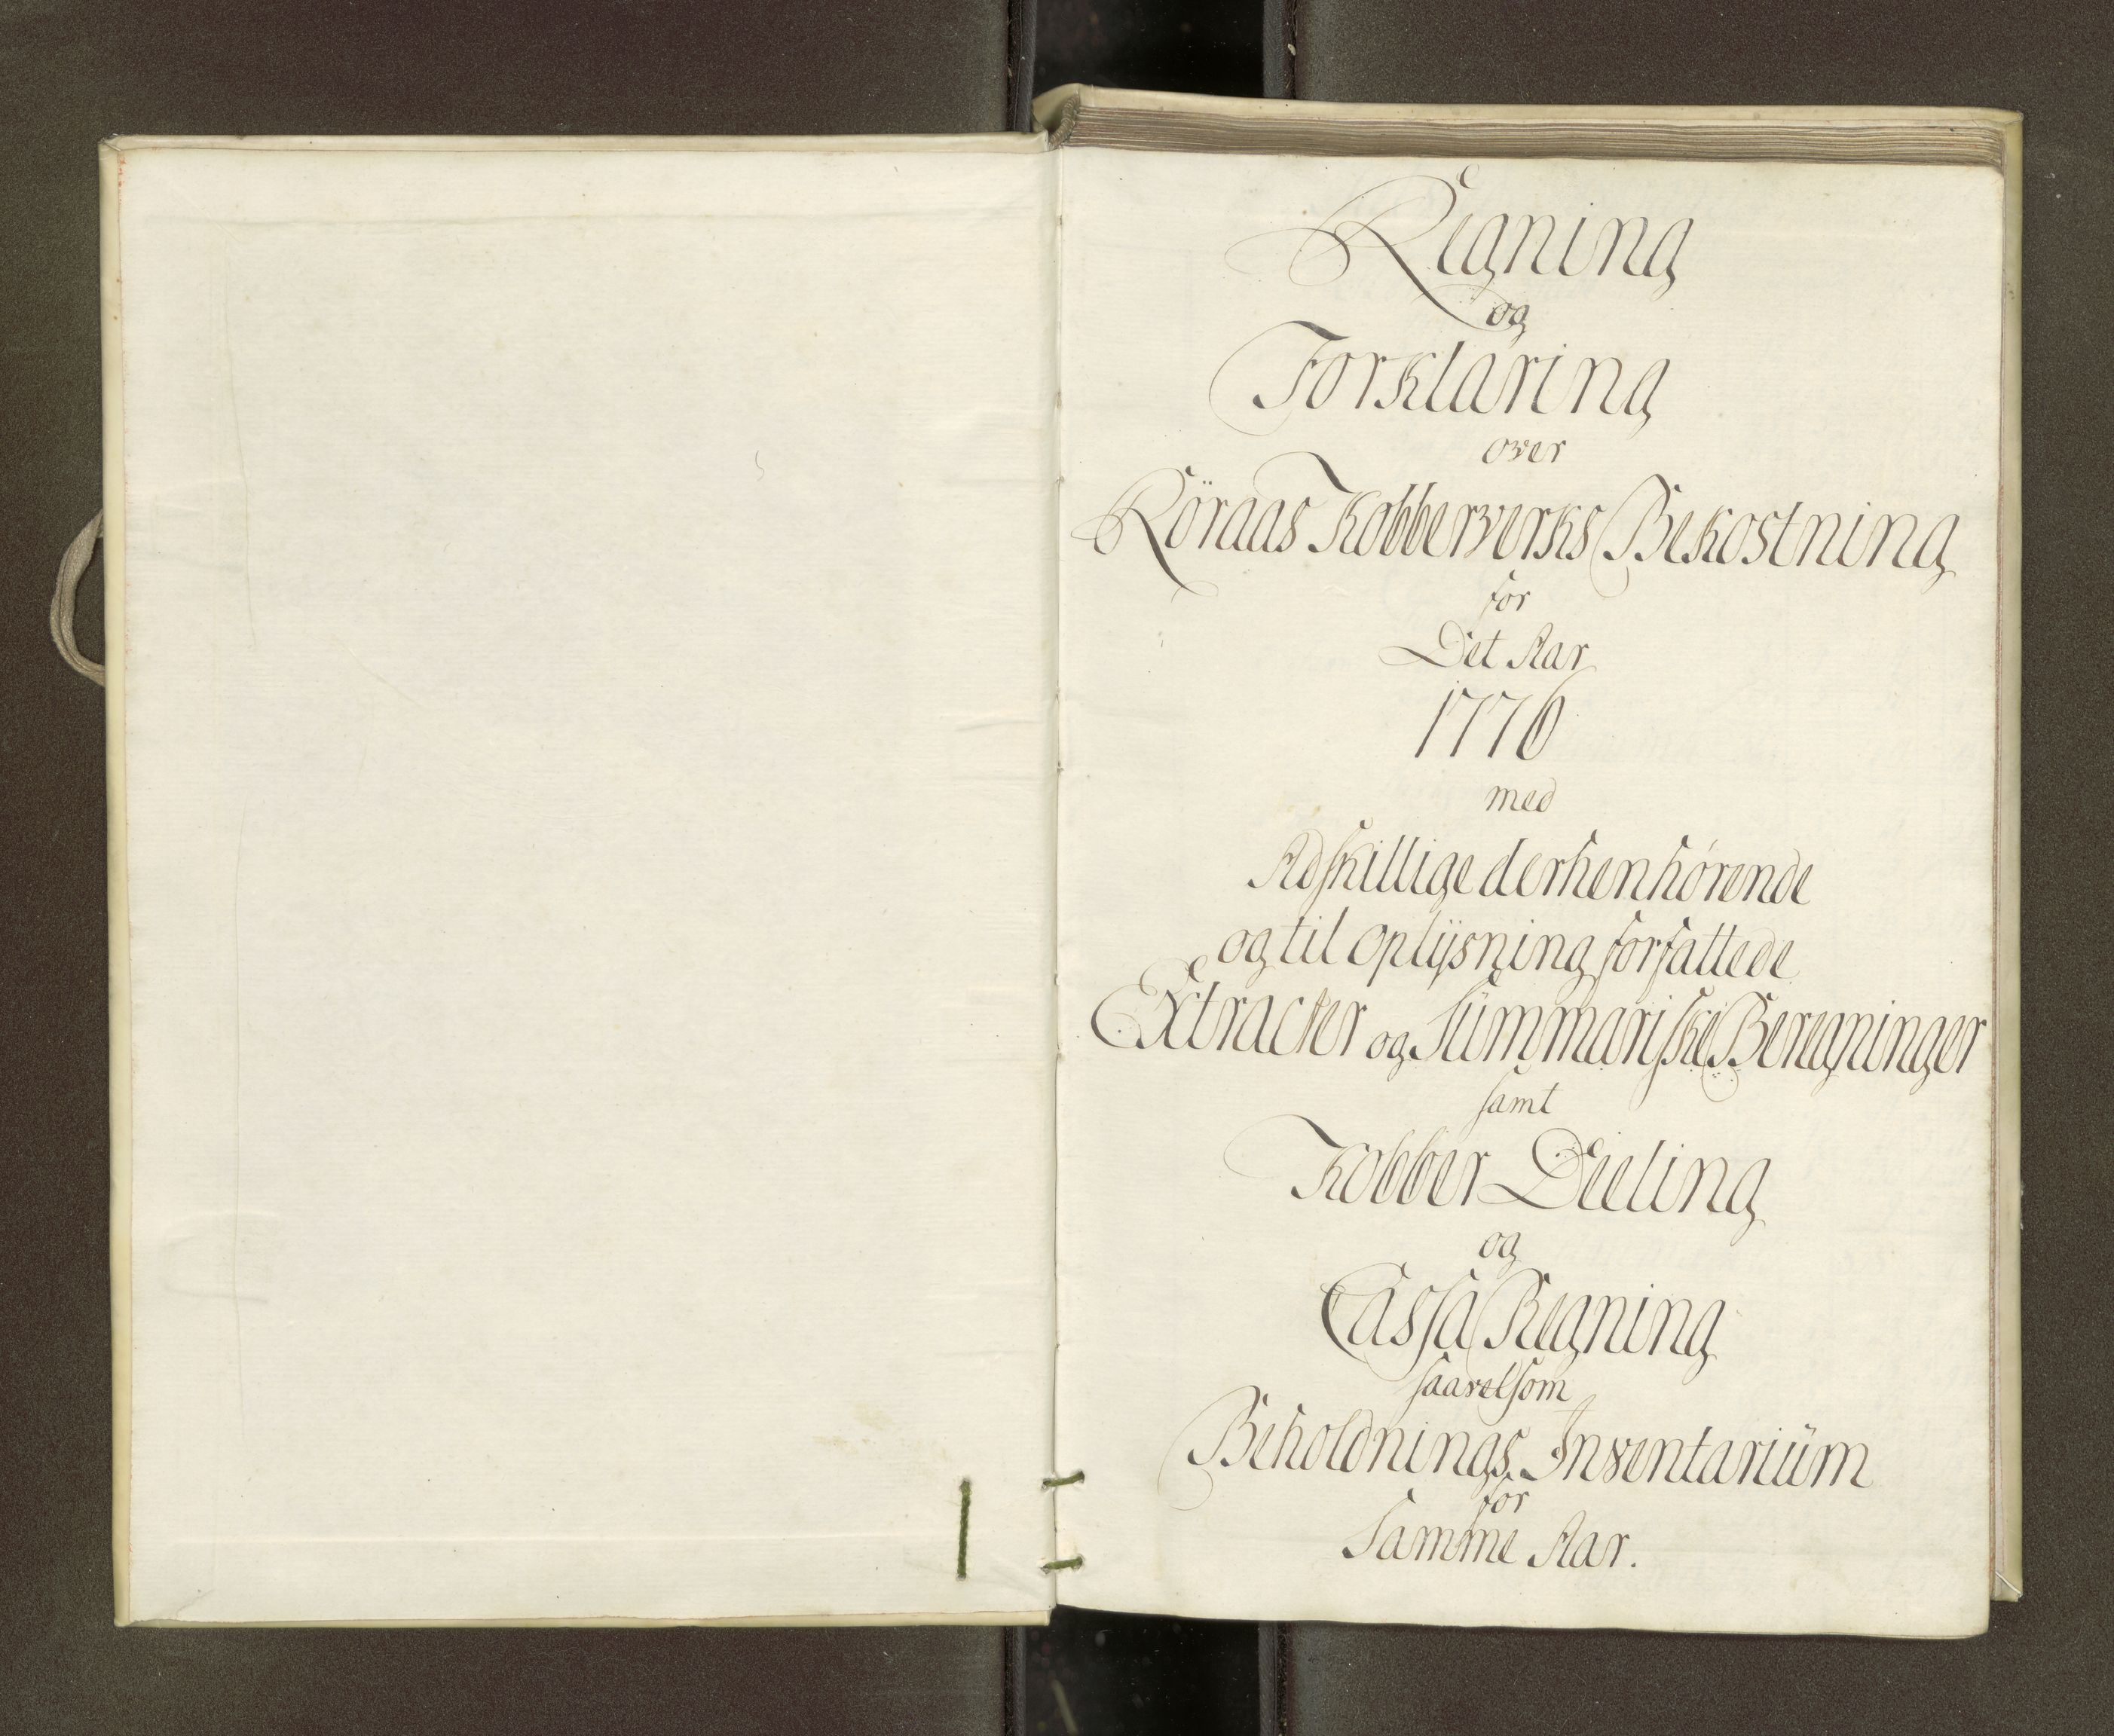 Regning
og
Forklaring
over
Röraas Kobberverks Bekostning
for
Det Aar
1776
med
Adskillige derhenhörende
og til Oplÿsning forfattede
Extracter og Summariske Beregninger
samt
Kobber Deeling
og
Cassa Regning
saavelsom
Beholdnings Inventarium
for
Samme Aar.